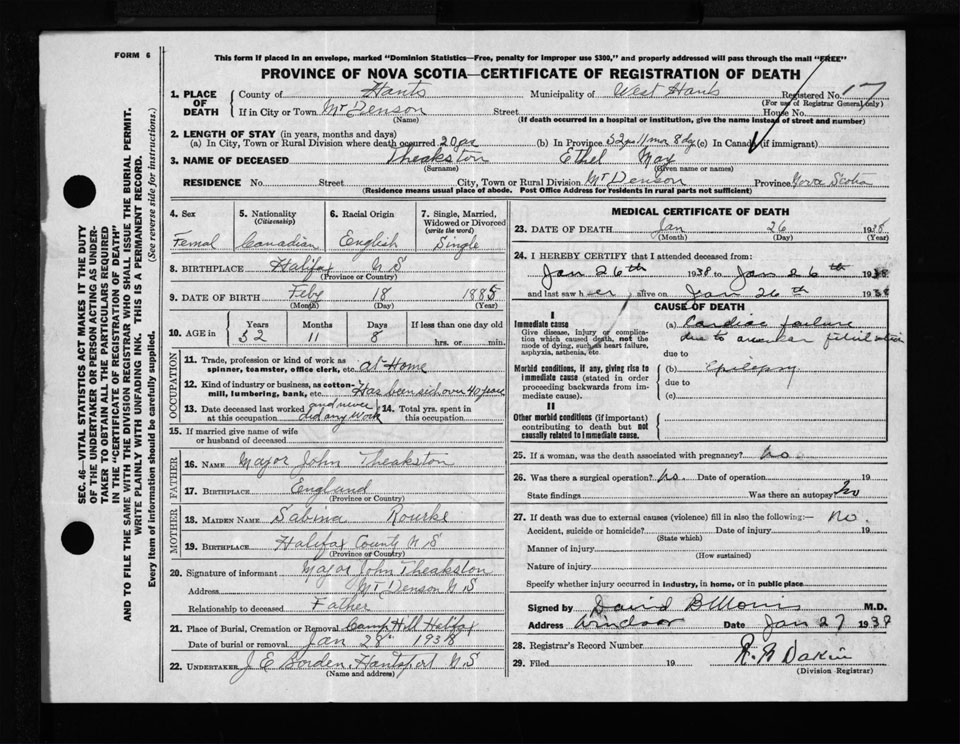 FORM 6
This form if placed in an envelope, marked "Dominion Statistics—Free, penalty for improper use $300," and properly addressed will pass through the mail "FREE"
PROVINCE OF NOVA SCOTIA—CERTIFICATE OF REGISTRATION OF DEATH
1. PLACE OF DEATH
County of Hants Municipality of West Hants Registered No. 17
(For use of Registrar General only)
If in City or Town Mt Denson Street House No.
(Name) (If death occurred in a hospital or institution, give the name instead of street and number)
2. LENGTH OF STAY (in years, months and days)
(a) In City, Town or Rural Division where death occurred 20 yrs (b) In Province 52 yrs 11 mos 8 dys (c) In Canada (if immigrant)
3. NAME OF DECEASED Theakston Ethel May
(Surname) (Given name or names)
RESIDENCE No. Street City, Town or Rural Division Mt Denson Province Nova Scotia
(Residence means usual place of abode. Post Office Address for residents in rural parts not sufficient)
4. Sex
Femal
5. Nationality
(Citizenship)
Canadian
6. Racial Origin
English
7. Single, Married, Widowed or Divorced
(write the word)
Single
8. BIRTHPLACE Halifax N S
(Province or Country)
9. DATE OF BIRTH Feby 18 1885
(Month) (Day) (Year)
10. AGE in Years Months Days If less than one day old
52 11 8 hrs. or min.
OCCUPATION
11. Trade, profession or kind of work as spinner, teamster, office clerk, etc. at Home
12. Kind of industry or business, as cotton-mill, lumbering, bank, etc. Has been sick over 40 years
13. Date deceased last worked at this occupation and never did any work
14. Total yrs. spent in this occupation
15. If married give name of wife or husband of deceased
FATHER
16. NAME Major John Theakston
17. BIRTHPLACE England
(Province or Country)
MOTHER
18. MAIDEN NAME Sabina Rourke
19. BIRTHPLACE Halifax County N S
(Province or Country)
20. Signature of informant Major John Theakston
Address Mt Denson N S
Relationship to deceased Father
21. Place of Burial, Cremation or Removal Camp Hill Halifax
Date of burial or removal Jan 28" 1938
22. UNDERTAKER J E Borden, Hantsport N S
(Name and address)
MEDICAL CERTIFICATE OF DEATH
23. DATE OF DEATH Jan 26 1938
(Month) (Day) (Year)
24. I HEREBY CERTIFY that I attended deceased from:
Jan 26th 1938 to Jan 26th 1938
and last saw her alive on Jan 26th 1938
CAUSE OF DEATH
I
Immediate cause
Give disease, injury or complication which caused death, not the mode of dying, such as heart failure, asphyxia, asthenia, etc.
(a) Cardiac failure
due to auricular fibrillation
due to
Morbid conditions, if any, giving rise to immediate cause (stated in order proceeding backwards from immediate cause).
(b) Epilepsy
due to
(c)
II
Other morbid conditions (if important) contributing to death but not causally related to immediate cause.
25. If a woman, was the death associated with pregnancy? no
26. Was there a surgical operation? no. Date of operation 19
State findings Was there an autopsy? no
27. If death was due to external causes (violence) fill in also the following:— no.
Accident, suicide or homicide? Date of injury 19
(State which)
Manner of injury
(How sustained)
Nature of injury
Specify whether injury occurred in industry, in home, or in public place
Signed by David B Morris M.D.
Address Windsor Date Jan 27 1938
28. Registrar's Record Number
29. Filed 19 Dakin
(Division Registrar)
SEC. 46—VITAL STATISTICS ACT MAKES IT THE DUTY
OF THE UNDERTAKER OR PERSON ACTING AS UNDER-
TAKER TO OBTAIN ALL THE PARTICULARS REQUIRED
IN THE "CERTIFICATE OF REGISTRATION OF DEATH"
AND TO FILE THE SAME WITH THE DIVISION REGISTRAR WHO SHALL ISSUE THE BURIAL PERMIT.
WRITE PLAINLY WITH UNFADING INK. THIS IS A PERMANENT RECORD.
Every item of information should be carefully supplied. (See reverse side for instructions.)